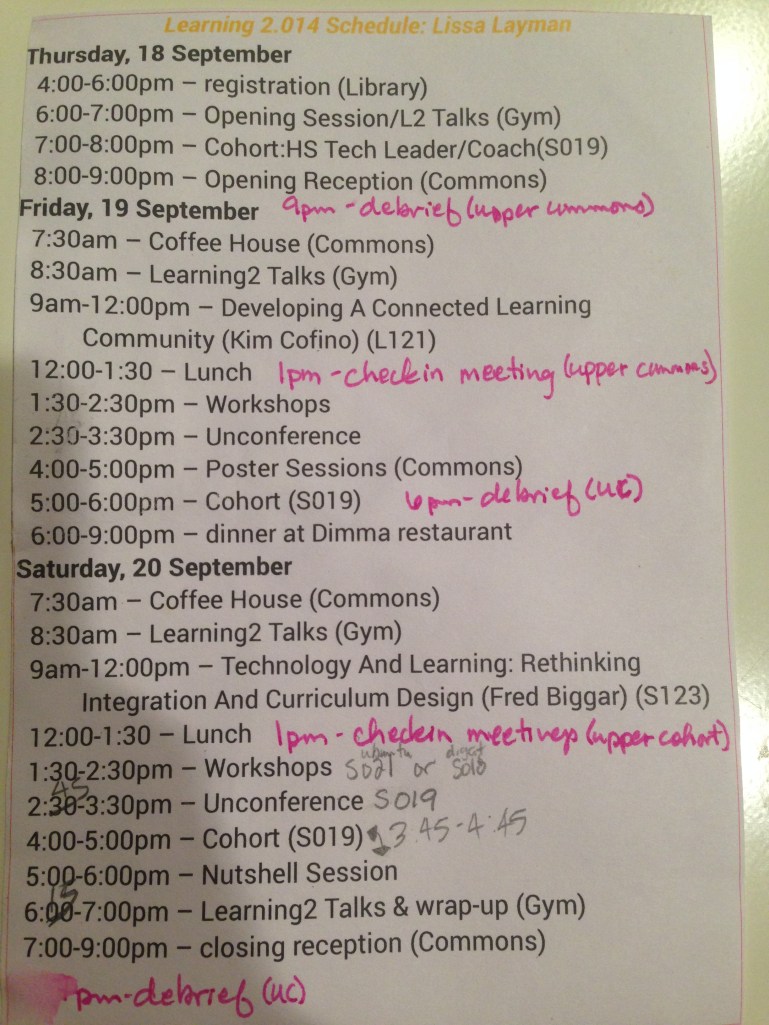 Learning 2.014 Schedule: Lissa Layman
Thursday, 18 September
4:00-6:00pm – registration (Library)
6:00-7:00pm – Opening Session/L2 Talks (Gym)
7:00-8:00pm – Cohort:HS Tech Leader/Coach(S019)
8:00-9:00pm – Opening Reception (Commons)
Friday, 19 September 9pm - debrief (upper commons)
7:30am – Coffee House (Commons)
8:30am – Learning2 Talks (Gym)
9am-12:00pm – Developing A Connected Learning
Community (Kim Cofino) (L121)
12:00-1:30 – Lunch 1pm - checkin meeting (upper commons)
1:30-2:30pm – Workshops
2:30-3:30pm – Unconference
4:00-5:00pm – Poster Sessions (Commons)
5:00-6:00pm – Cohort (S019) 6pm - debrief (UC)
6:00-9:00pm – dinner at Dimma restaurant
Saturday, 20 September
7:30am – Coffee House (Commons)
8:30am – Learning2 Talks (Gym)
9am-12:00pm – Technology And Learning: Rethinking
Integration And Curriculum Design (Fred Biggar) (S123)
12:00-1:30 – Lunch 1pm - checkin meetings (upper cohort)
ubuntu
1:30-2:30pm – Workshops S021 or S018
45
2:30-3:30pm – Unconference S019
4:00-5:00pm – Cohort (S019) 3:45-4:45
5:00-6:00pm – Nutshell Session
15
6:00-7:00pm – Learning2 Talks & wrap-up (Gym)
7:00-9:00pm – closing reception (Commons)
pm - debrief (UC)